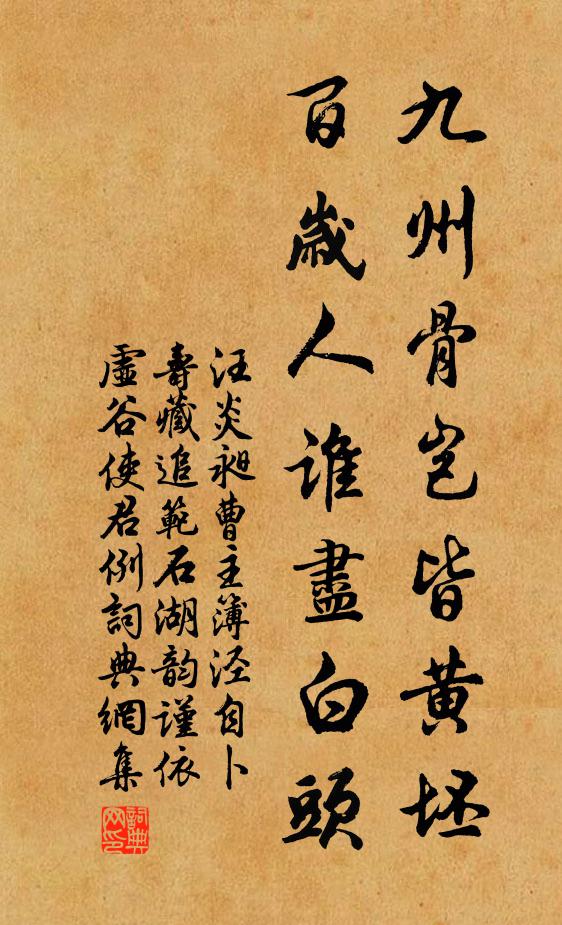 九州骨岂皆黄坯
百歲人誰盡白頭
汪炎昶曹主簿涇自卜
壽藏追範石湖韵謹依
虛谷使君例詞典網集
詞典网印